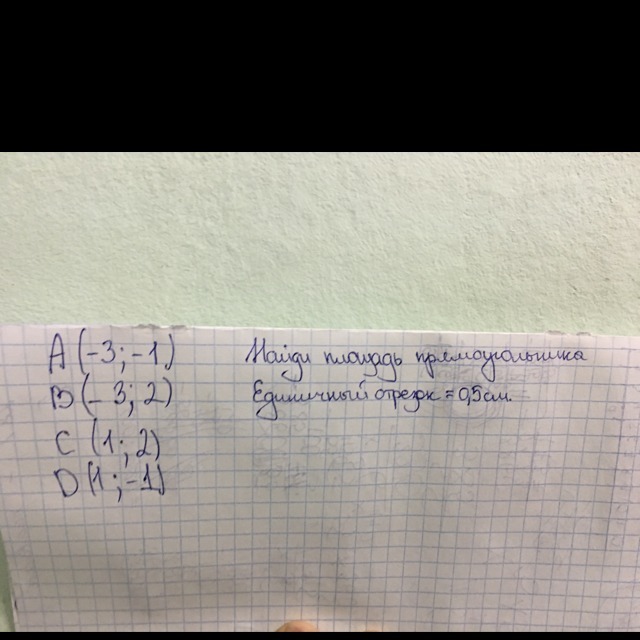 A (-3; -1) Найди площадь прямоугольника
B (-3; 2) Единичный отрезок = 0,5 см.
C (1; 2)
D (1; -1)